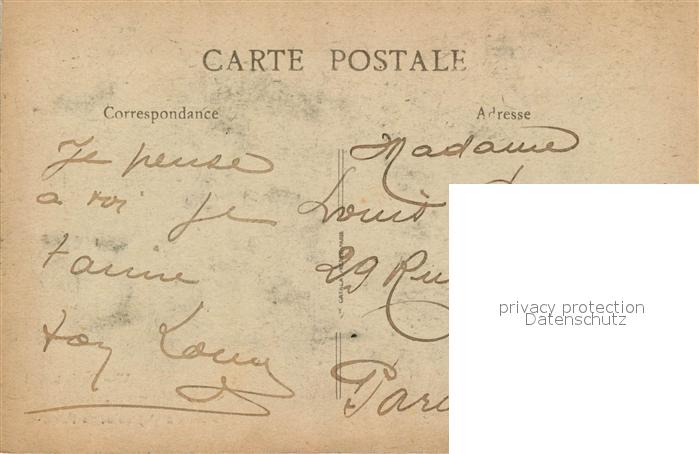 CARTE POSTALE
Correspondance
Adresse
Je pense
a toi Je
t'aime
ton Louis
Madame
Louis
29 Rue
Paris
privacy protection
Datenschutz